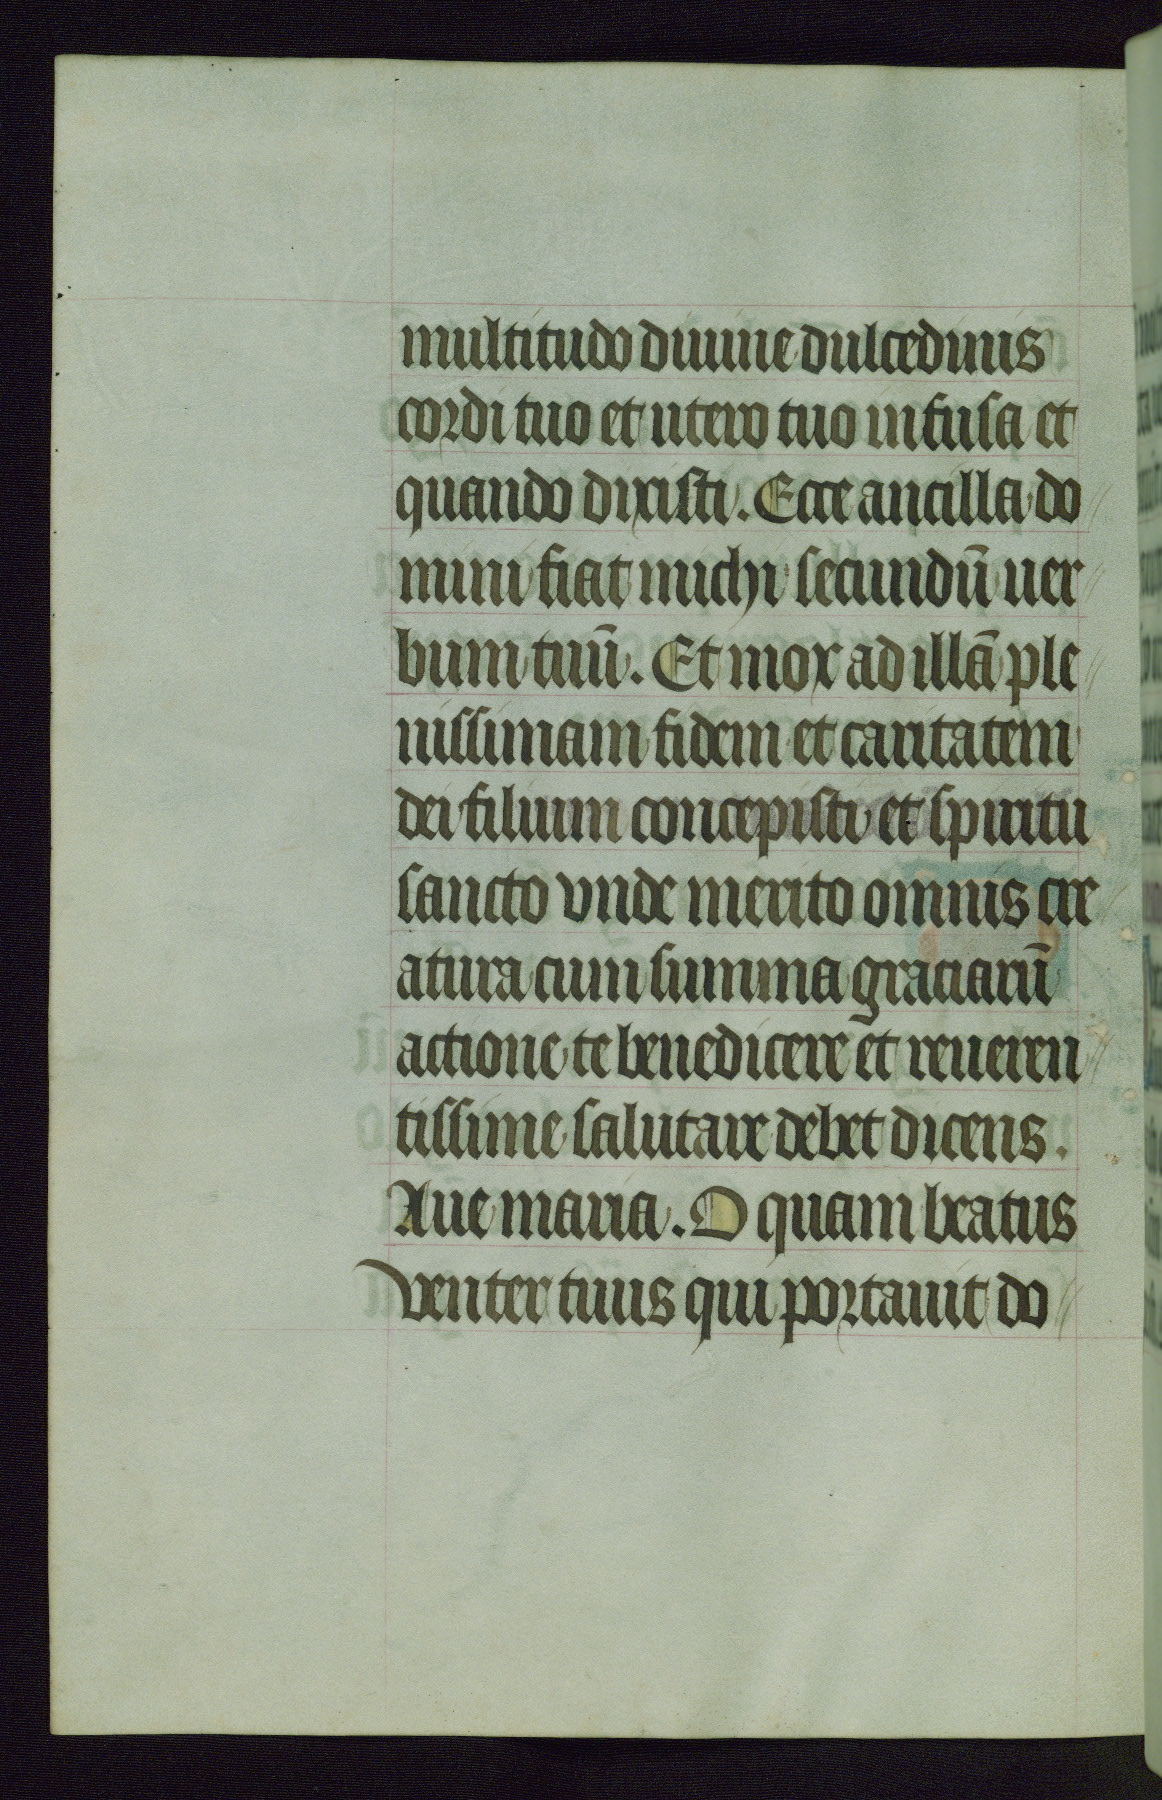 multitudo diuine dulcedinis
cordi tuo et utero tuo infusa et
quando dixisti. Ecce ancilla do
mini fiat michi secundū uer
bum tuū. Et mox ad illā ple
nissimam fidem et caritatem
dei filium concepisti et spiritu
sancto vnde merito omnis cre
atura cum summa graciarū
actione te benedicere et reueren
tissime salutare debet dicens.
Aue maria. O quam beatus
venter tuus qui portauit do